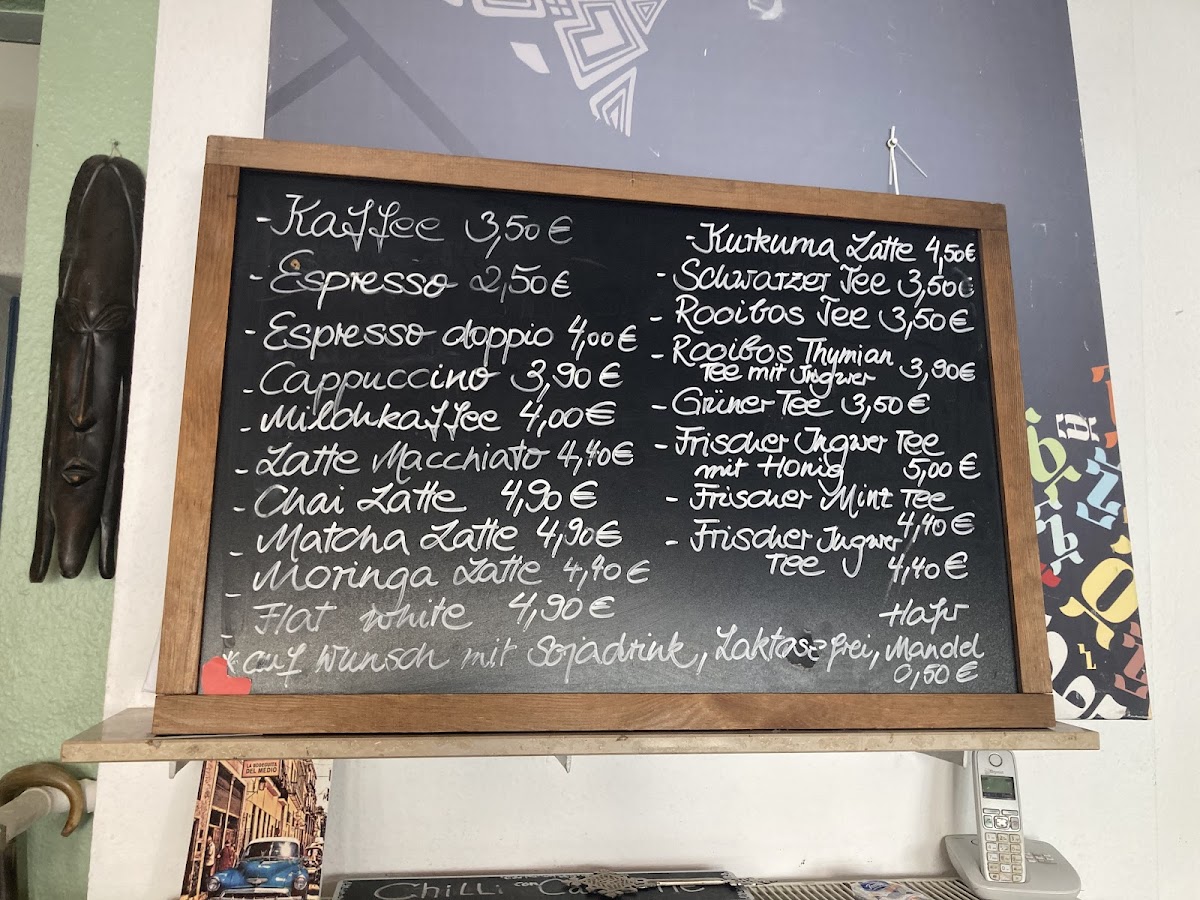 - Kaffee 3,50 €
- Espresso 2,50 €
- Espresso doppio 4,00 €
- Cappuccino 3,90 €
- Milchkaffee 4,00 €
- Latte Macchiato 4,40 €
- Chai Latte 4,90 €
- Matcha Latte 4,90 €
- Moringa Latte 4,90 €
- Flat white 4,90 €
- Kurkuma Latte 4,50 €
- Schwarzer Tee 3,50 €
- Rooibos Tee 3,50 €
- Rooibos Thymian
Tee mit Ingwer 3,90 €
- Grüner Tee 3,50 €
- Frischer Ingwer Tee
mit Honig 5,00 €
- Frischer Mint Tee
4,40 €
- Frischer Ingwer
Tee 4,40 €
Hafer
* auf Wunsch mit Sojadrink, Laktosefrei, Mandel
0,50 €
LA BODEGUITA
DEL MEDIO
CHILLI con CARNE